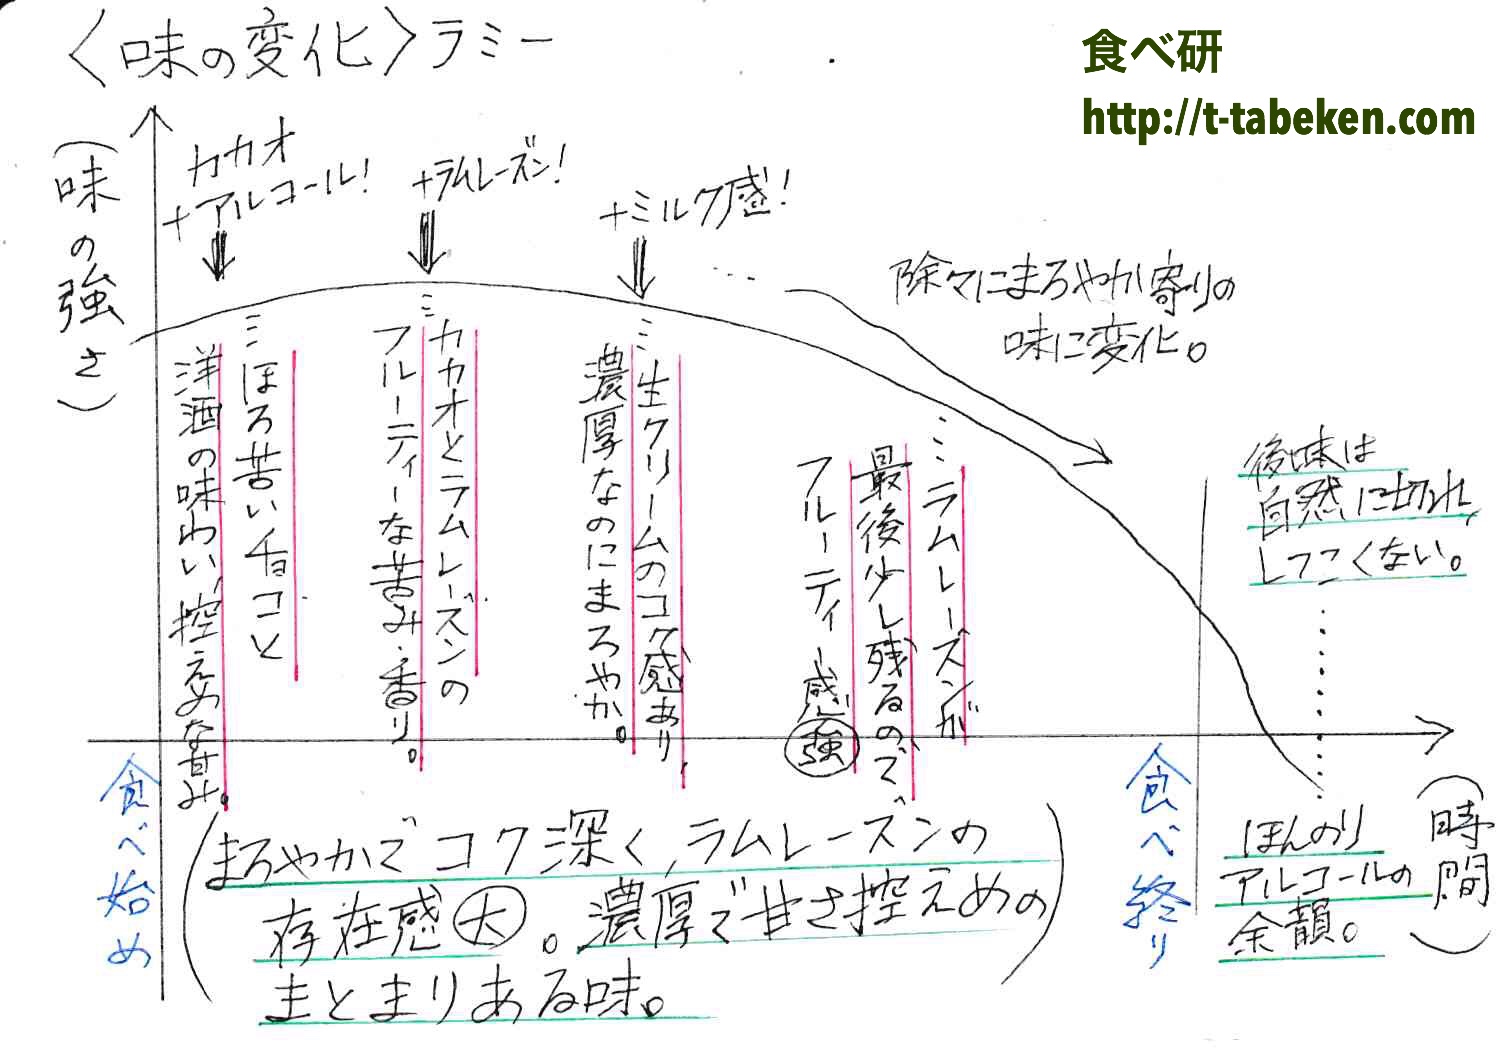 〈味の変化〉ラミー
食べ研
http://t-tabeken.com
(味の強さ)
カカオ
+アルコール!
+ラムレーズン!
+ミルク感!
…
除々にまろやか寄りの
味に変化。
…ほろ苦いチョコと
洋酒の味わい、控えめな甘み。
…カカオとラムレーズンの
フルーティーな苦み・香り。
…生クリームのコク感あり、
濃厚なのにまろやか。
…ラムレーズンが
最後少し残るので、
フルーティー感強
後味は
自然に切れ、
しつこくない。
食べ始め
食べ終り
(まろやかでコク深く、ラムレーズンの
存在感大。濃厚で甘さ控えめの
まとまりある味。)
ほんのり
アルコールの
余韻。
(時間)